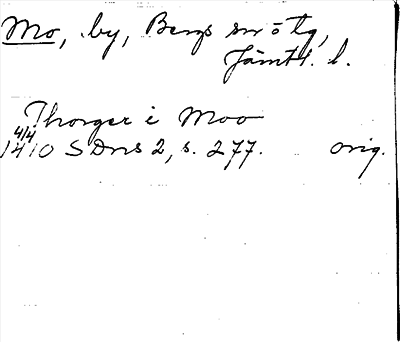 Mo, by, Bergs sn o tg,
Jämtl. l.
Thorger i Moo
4/4
1410 SDns 2, s. 277. orig.